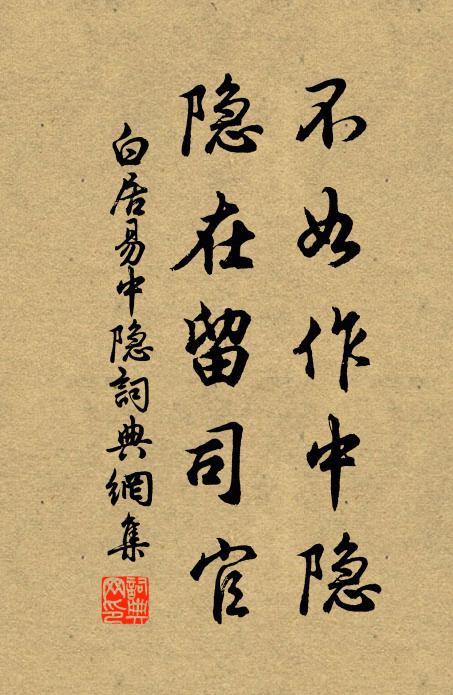 不如作中隐
隐在留司官
白居易中隐詞典網集
詞典网印